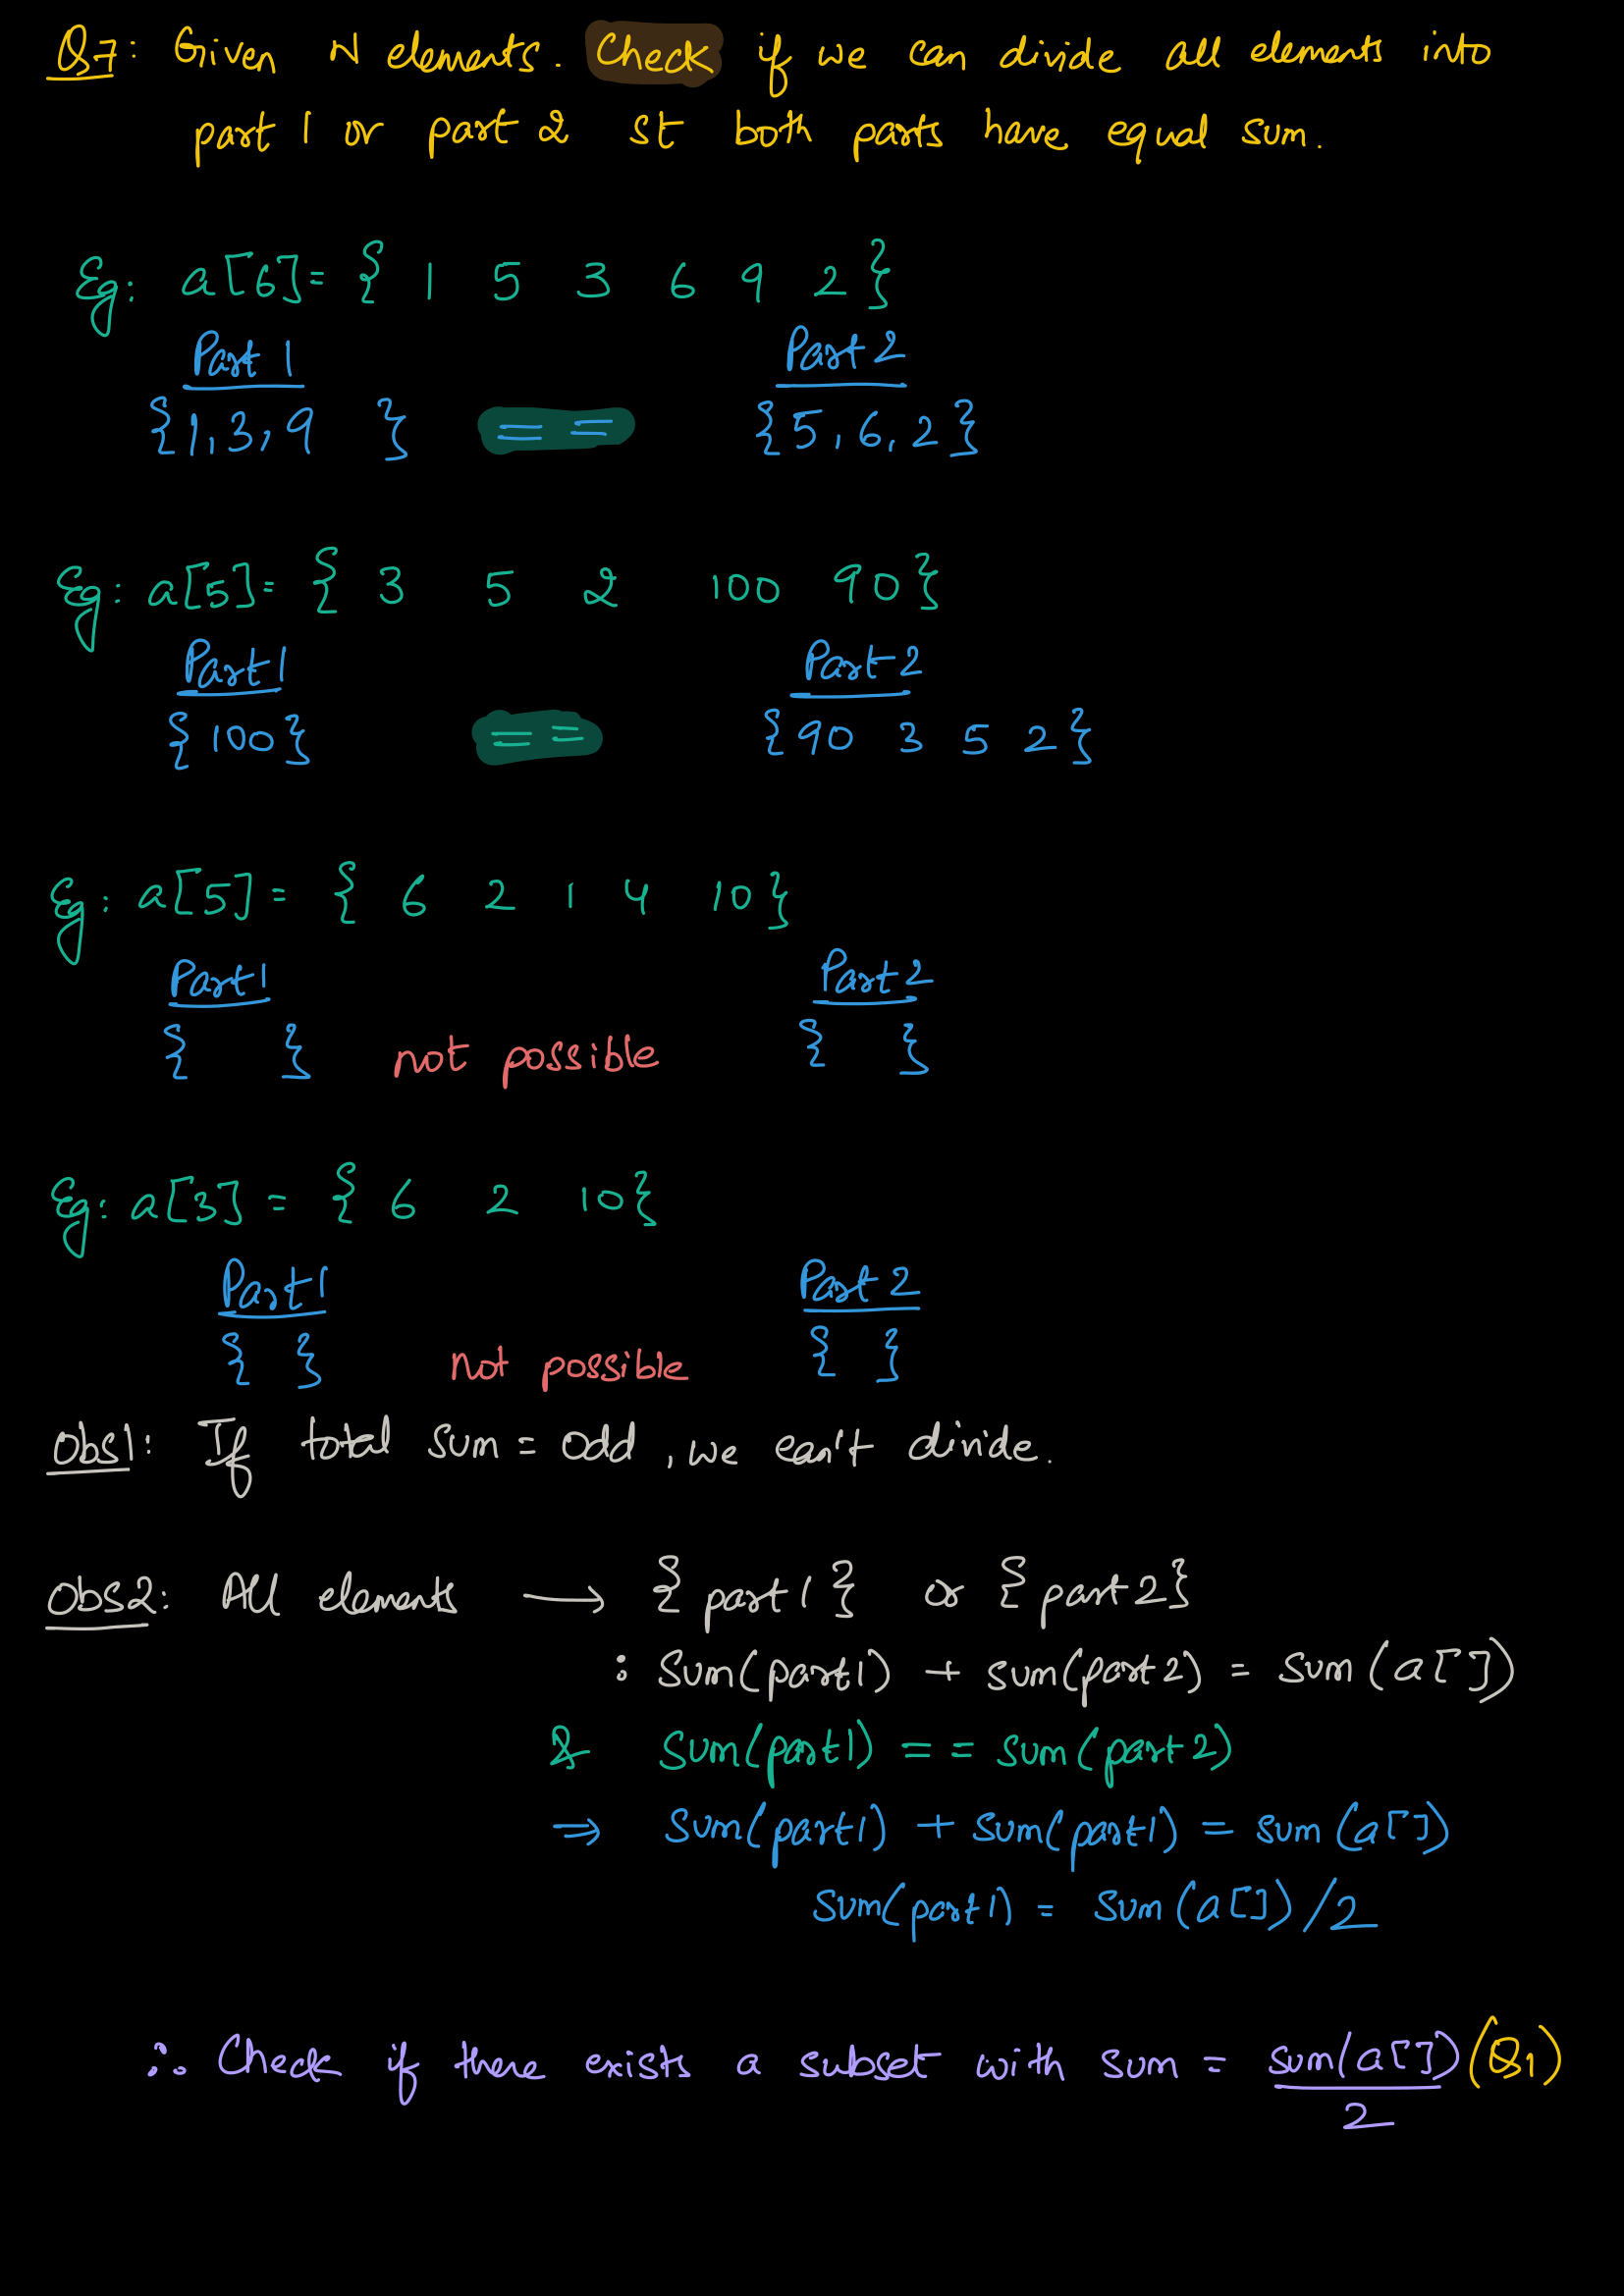 Q7: Given N elements. Check if we can divide all elements into
part 1 or part 2 st both parts have equal sum.
Eg: a[6]= { 1 5 3 6 9 2 }
Part 1 Part 2
{1,3,9 } == {5,6,2}
Eg: a[5]= { 3 5 2 100 90}
Part1 Part2
{100} == {90 3 5 2}
Eg: a[5] = { 6 2 1 4 10}
Part1 Part2
{ } not possible { }
Eg: a[3] = { 6 2 10}
Part1 Part2
{ } not possible { }
Obs1: If total sum = odd, we can't divide.
Obs2: All elements → {part1} or {part2}
: sum(part1) + sum(part2) = sum(a[])
& sum(part1) == sum(part2)
⇒ sum(part1) + sum(part1) = sum(a[])
sum(part1) = sum(a[])/2
∴ Check if there exists a subset with sum = sum(a[]) (Q1)
2